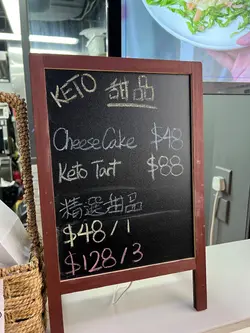 KETO 甜品
Cheese Cake $48
Keto Tart $88
精選甜品
$48/1
$128/3